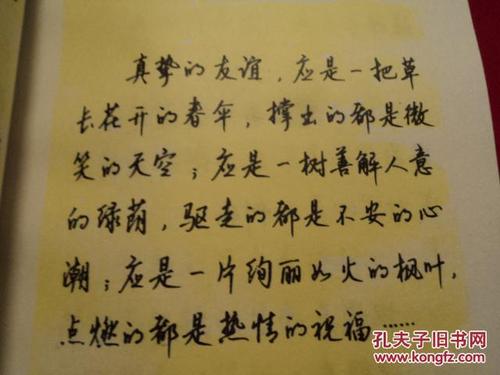 真挚的友谊，应是一把草
长花开的春伞，撑出的都是微
笑的天空；应是一树善解人意
的绿荫，驱走的都是不安的心
潮；应是一片绚丽如火的枫叶，
点燃的都是热情的祝福……
孔夫子旧书网
www.kongfz.com